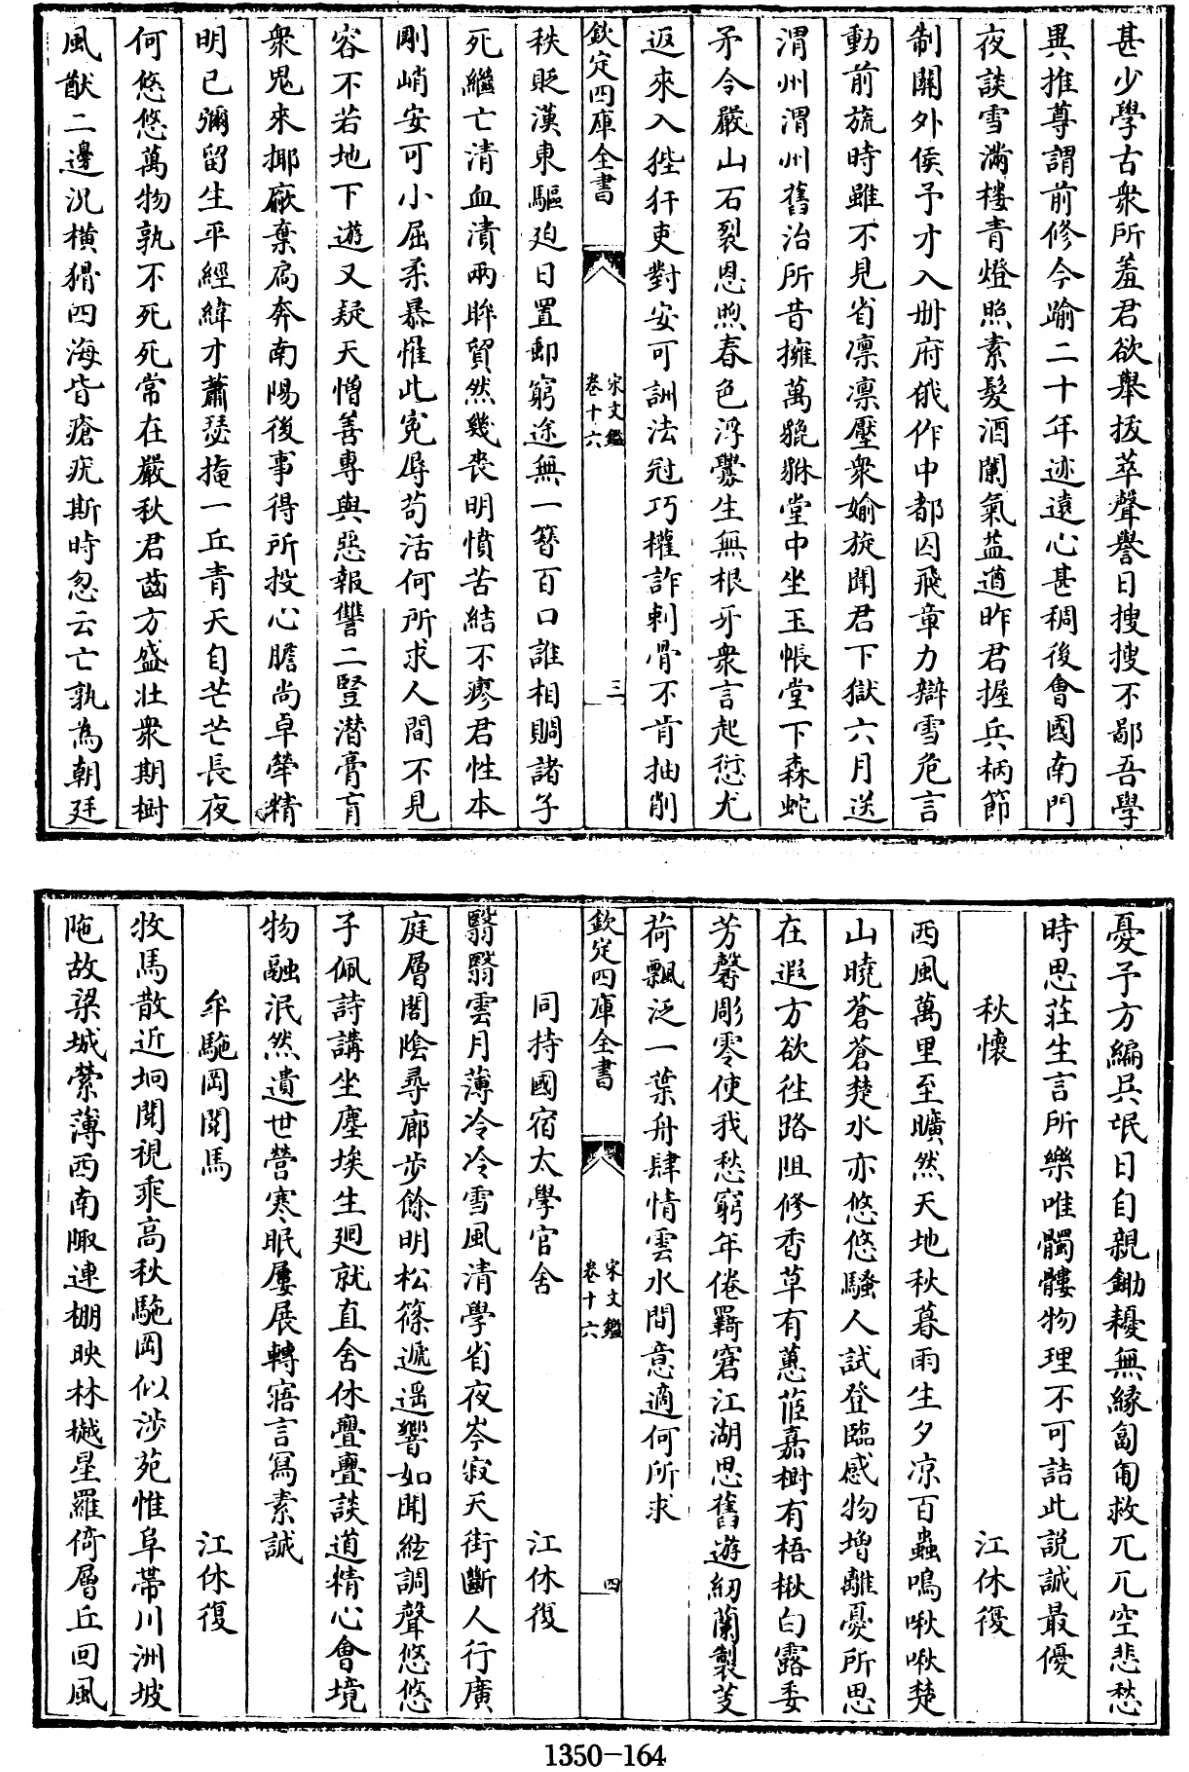 甚少學古衆所羞君欲舉拔萃聲譽日搜搜不鄙吾學
異推尊謂前修今踰二十年迹遠心甚稠後會國南門
夜談雪滿樓青燈照素髮酒闌氣益遒昨君握兵柄節
制關外侯予才入册府俄作中都囚飛章力辯雪危言
動前旒時雖不見省凛凛壓衆婾旋聞君下獄六月送
渭州渭州舊治所昔擁萬貔貅堂中坐玉帳堂下森蛇
矛令嚴山石裂恩煦春色浮釁生無根牙衆言起愆尤
返來入狴犴吏對安可詶法冠巧權詐刺骨不肯抽削
欽定四庫全書
宋文鑑
卷十六
三
秩貶漢東驅廹日置郵窮途無一簪百口誰相賙諸子
死繼亡清血漬兩眸貿然幾喪明憤苦結不瘳君性本
剛峭安可小屈柔暴罹此寃辱苟活何所求人間不見
容不若地下遊又疑天憎善專與惡報讐二豎潜膏肓
衆鬼來揶厰棄扃奔南陽後事得所投心膽尚卓犖精
明已彌留生平經緯才蕭瑟掩一丘青天自茫茫長夜
何悠悠萬物孰不死死常在嚴秋君齒方盛壯衆期樹
風猷二邊況横猾四海皆瘡疣斯時忽云亡孰為朝廷
憂予方編兵氓日自親鋤耰無縁匐匍救兀兀空悲愁
時思莊生言所樂唯髑髏物理不可詰此説誠最優
秋懷 江休復
西風萬里至曠然天地秋暮雨生夕凉百蟲鳴啾啾楚
山曉蒼蒼楚水亦悠悠騷人試登臨感物增離憂所思
在遐方欲往路阻修香草有蕙茝嘉樹有梧楸白露委
芳馨彫零使我愁窮年倦羇窘江湖思舊遊紉蘭製芰
荷飄泛一葉舟肆情雲水間意適何所求
欽定四庫全書
宋文鑑
卷十六
四
同持國宿太學官舍 江休復
翳翳雲月薄冷冷雪風清學省夜岑寂天街斷人行廣
庭層閣陰尋廊步餘明松篠遞遥響如聞絃調聲悠悠
子佩詩講坐塵埃生廻就直舍休亹亹談道精心會境
物融泯然遺世營寒眠屢展轉寤言寫素誠
牟駞岡閱馬 江休復
牧馬散近坰閱視乘高秋駞岡似涉苑惟阜帶川洲坡
陁故梁城縈薄西南陬連棚映林樾星羅倚層丘回風
1350-164